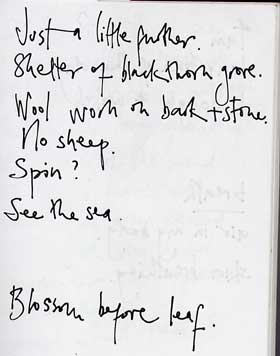 Just a little further.
Shelter of blackthorn grove.
Wool worn on bark + stone.
No sheep.
Spin?
See the sea.
Blossom before leaf.